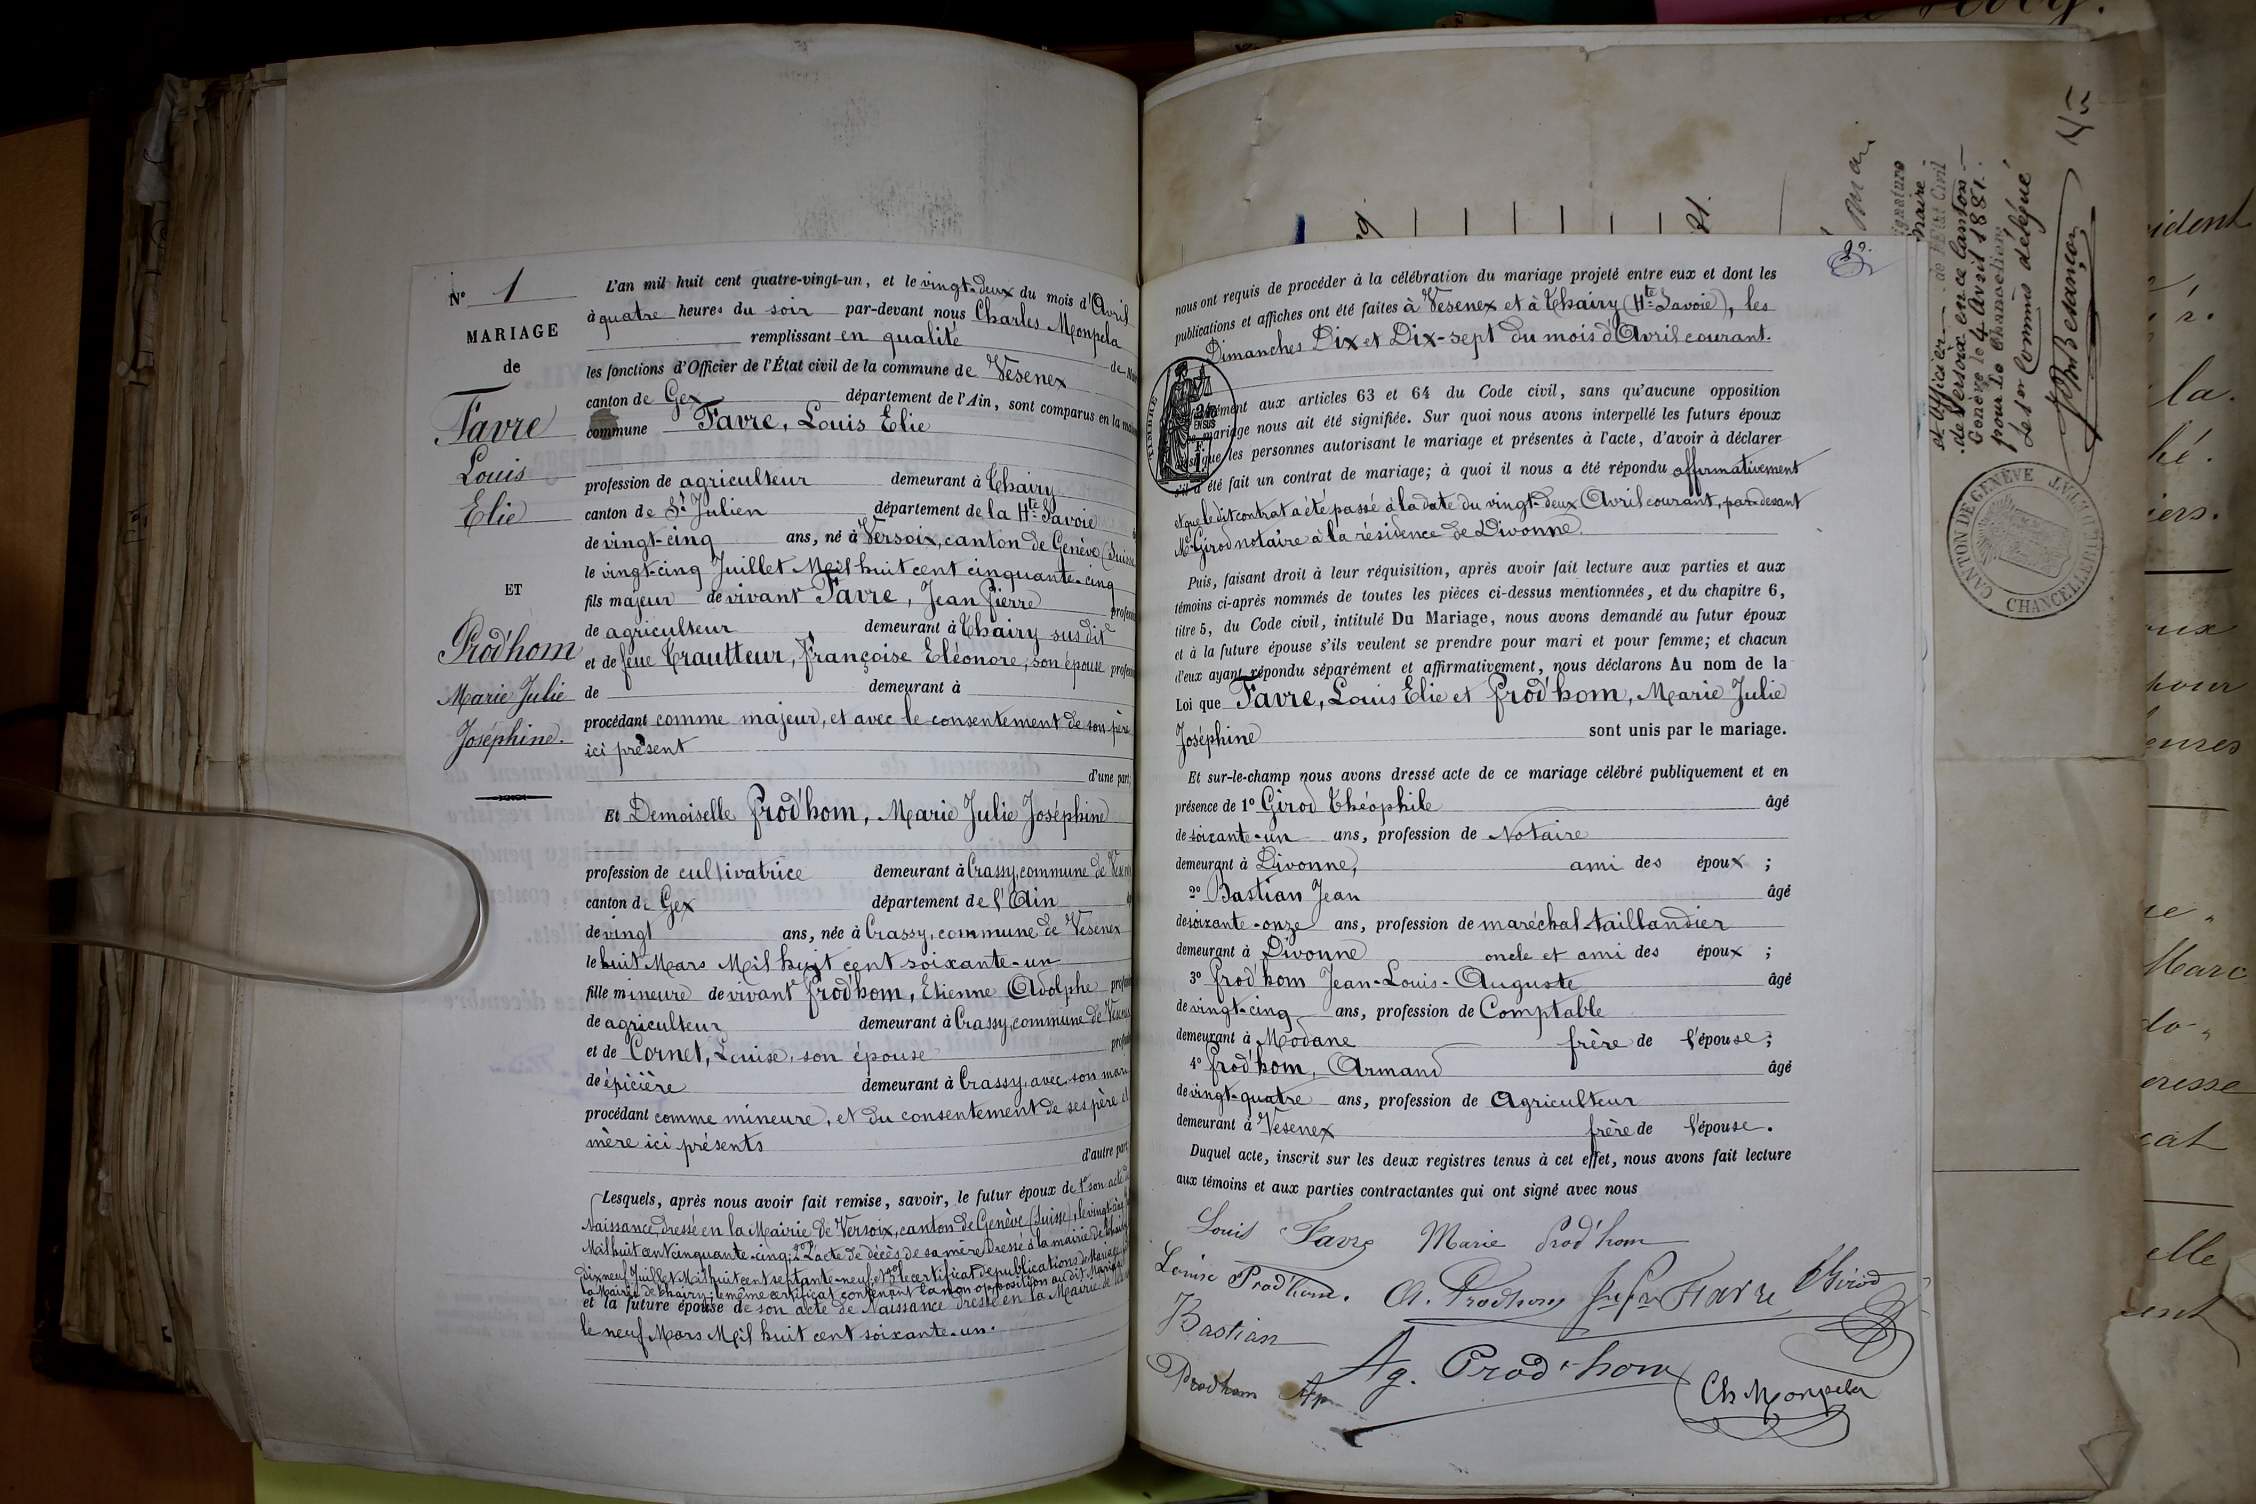 N° 1
MARIAGE
de
Favre
Louis
Elie
ET
Prod'hom
Marie Julie
Joséphine.
L'an mil huit cent quatre-vingt-un, et le vingt-deux du mois d'Avril
à quatre heures du soir par-devant nous Charles Monpela
remplissant en qualité de
les fonctions d'Officier de l'État civil de la commune de Vesenex
canton de Gex département de l'Ain, sont comparus en la
commune Favre, Louis Elie
profession de agriculteur demeurant à Thairy
canton de St Julien département de la Hte Savoie
de vingt-cinq ans, né à Versoix, canton de Genève (Suisse
le vingt-cinq Juillet Mil huit cent cinquante-cinq
fils majeur de vivant Favre, Jean Pierre
de agriculteur demeurant à Thairy susdit
et de feue Trautteur, Françoise Eléonore, son épouse
de demeurant à
procédant comme majeur, et avec le consentement de son père
ici présent
d'une part,
Et Demoiselle Prod'hom, Marie Julie Joséphine
profession de cultivatrice demeurant à Crassy, commune de
canton de Gex département de l'Ain
de vingt ans, née à Crassy, commune de Vesenex
le huit Mars Mil huit cent soixante-un
fille mineure de vivant Prod'hom, Etienne Adolphe
de agriculteur demeurant à Crassy, commune de
et de Cornet, Louise, son épouse
de épicière demeurant à Crassy, avec son mari
procédant comme mineure, et du consentement de ses père et
mère ici présents
d'autre part
Lesquels, après nous avoir fait remise, savoir, le futur époux de 1° son acte
Naissance dressé en la Mairie de Versoix, canton de Genève (Suisse), le vingt-cinq
Mil huit cent cinquante-cinq; 2° L'acte de décès de sa mère dressé à la mairie de
dix neuf Juillet Mil huit cent septante-neuf, et 3° le certificat de publications de Mariage
la Mairie de Thairy; le même certificat contenant la non opposition au dit Mariage
et la future épouse de son acte de Naissance dressé en la Mairie de
le neuf Mars Mil huit cent soixante-un.
nous ont requis de procéder à la célébration du mariage projeté entre eux et dont les
publications et affiches ont été faites à Vesenex et à Thairy (Hte Savoie), les
Dimanches Dix et Dix-sept du mois d'Avril courant.
TIMBRE
aux articles 63 et 64 du Code civil, sans qu'aucune opposition
mariage nous ait été signifiée. Sur quoi nous avons interpellé les futurs époux
que les personnes autorisant le mariage et présentes à l'acte, d'avoir à déclarer
s'il a été fait un contrat de mariage; à quoi il nous a été répondu affirmativement
et que le dit contrat a été passé à la date du vingt-deux Avril courant, par-devant
Me Girod notaire à la résidence de Divonne.
Puis, faisant droit à leur réquisition, après avoir fait lecture aux parties et aux
témoins ci-après nommés de toutes les pièces ci-dessus mentionnées, et du chapitre 6,
titre 5, du Code civil, intitulé Du Mariage, nous avons demandé au futur époux
et à la future épouse s'ils veulent se prendre pour mari et pour femme; et chacun
d'eux ayant répondu séparément et affirmativement, nous déclarons Au nom de la
Loi que Favre, Louis Elie et Prod'hom, Marie Julie
Joséphine sont unis par le mariage.
Et sur-le-champ nous avons dressé acte de ce mariage célébré publiquement et en
présence de 1° Girod Théophile âgé
de soixante-un ans, profession de Notaire
demeurant à Divonne, ami des époux ;
2° Bastian Jean âgé
de soixante-onze ans, profession de maréchal taillandier
demeurant à Divonne oncle et ami des époux ;
3° Prod'hom Jean-Louis-Auguste âgé
de vingt-cinq ans, profession de Comptable
demeurant à Modane frère de l'épouse ;
4° Prod'hom, Armand âgé
de vingt-quatre ans, profession de Agriculteur
demeurant à Vesenex frère de l'épouse.
Duquel acte, inscrit sur les deux registres tenus à cet effet, nous avons fait lecture
aux témoins et aux parties contractantes qui ont signé avec nous
Louis Favre Marie Prod'hom
Louise Prod'hom. A. Prodhom Favre Girod
Bastian
Ag. Prod'hom
Prodhom Ch Monpela
et officier de l'Etat Civil
de Versoix en ce Canton
Genève le 4 Avril 1881.
pour Le Chancelier,
le 1er Commis délégué
CANTON DE GENÈVE
CHANCELLERIE